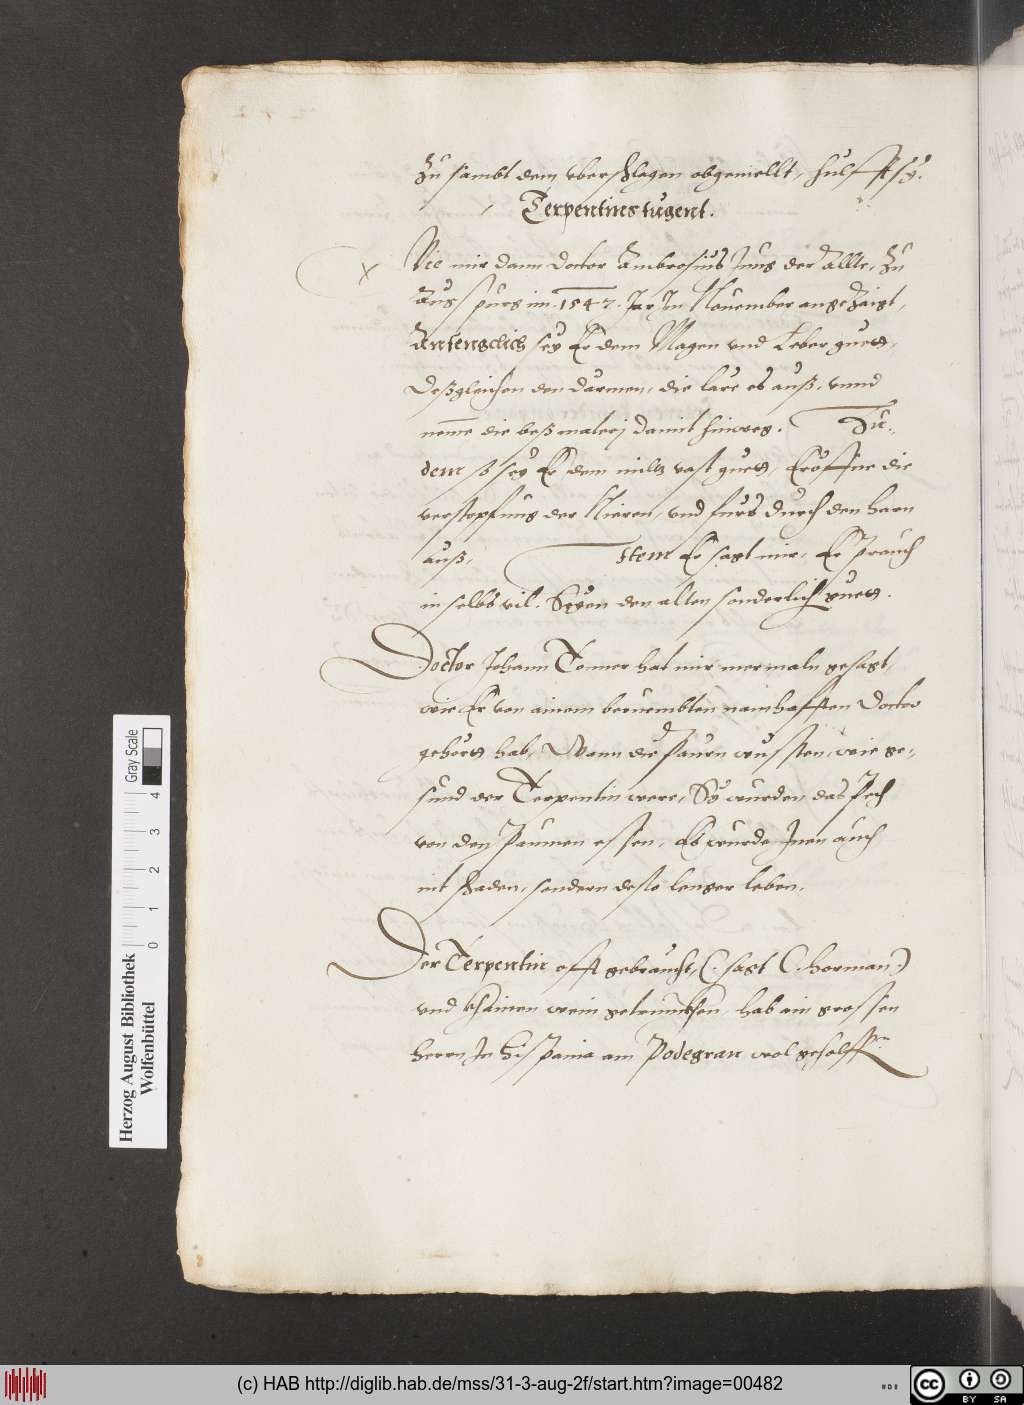 Zu sambt dem vberschlagen obgemellt, hülfft sy.
Terpentins tugent.
x Wie mir dann Doctor Ambrosius Jung der Allte, zu
Augspurg im .1547. Jar Jn Nouember angezaigt,
Anfengclich sey Er dem Magen vnd Leber guett,
Deßgleichen den därmen, die läre es auß, vnnd
neme die böß materj damit hinweg. Zu-
dem so sey Er dem miltz vast guett, Eröffne die
verstopfung der Nieren, vnd fürs durch den harn
auß, Item Er sagt mir, Er prauch
in selbs vil. Seyen den alten sonderlich guett.
Doctor Johann Tomer hat mir mermaln gesagt,
wie Er von ainem beruembten namhafften Doctor
gehört hab, Wann die Paurn wussten, wie ge-
sund der Terpentin were, So wurden das Pech
von den Paumen essen, Es wurde Jnen auch
nit schaden, sondern desto lenger leben.
Der Terpentin offt gebraucht, (. sagt C. Horman .)
vnd khainen wein getrunckhen, hab ain grossen
herrn Jn Hispania am Podegran wol geholffen
Herzog August Bibliothek
Wolfenbüttel
Gray Scale
0 1 2 3 4
(c) HAB http://diglib.hab.de/mss/31-3-aug-2f/start.htm?image=00482
cc BY SA